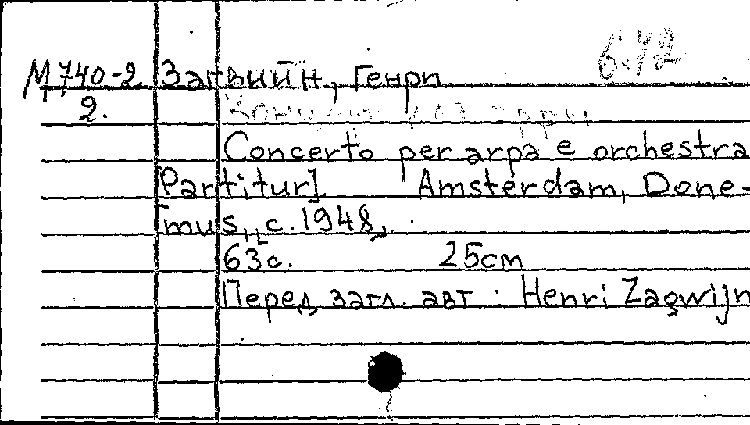 6.42
М740-2 Загвийн, Генри
2.
Concerto per arpa e orchestra
[Partitur]. Amsterdam, Done-
mus, c. 1948,
63с. 25см
Перед загл. авт: Henri Zagwijn